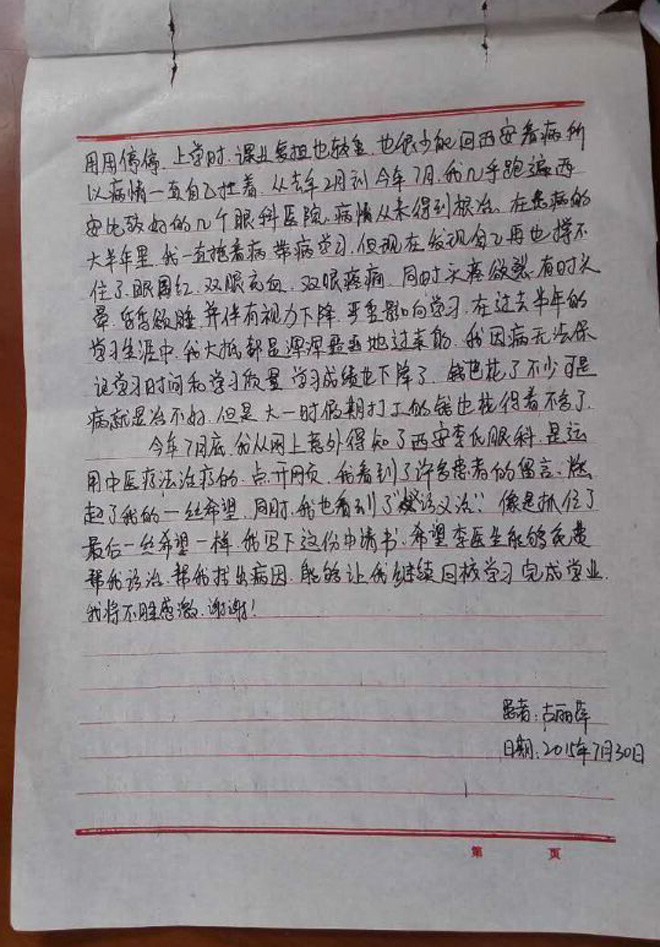 用用停停。上学时,课业负担也较重,也很少能回西安看病所
以病情一直自己拖着。从去年2月到今年7月,我几乎跑遍西
安比较好的几个眼科医院,病情从未得到根治。在患病的
大半年里,我一直拖着病带病学习,但现在发现自己再也撑不
住了,眼圈红,双眼充血,双眼疼痛,同时头疼欲裂,有时头
晕,昏昏欲睡,并伴有视力下降,严重影响学习。在过去半年的
学习生涯中,我大抵都是浑浑噩噩地过来的,我因病无法保
证学习时间和学习质量,学习成绩也下降了,钱也花了不少可是
病就是治不好,但是大一时假期打工的钱也花得着不舍了。
今年7月底,我从网上意外得知了西安李氏眼科,是运
用中医疗法治疗的,点开网页,我看到了许多患者的留言,燃
起了我的一丝希望,同时,我也看到了"诊义治",像是抓住了
最后一丝希望一样,我写下这份申请书,希望李医生能够免费
帮我诊治,帮我找出病因,能够让我继续回校学习完成学业,
我将不胜感激,谢谢!
患者:古丽萍
日期:2015年7月30日
第 页